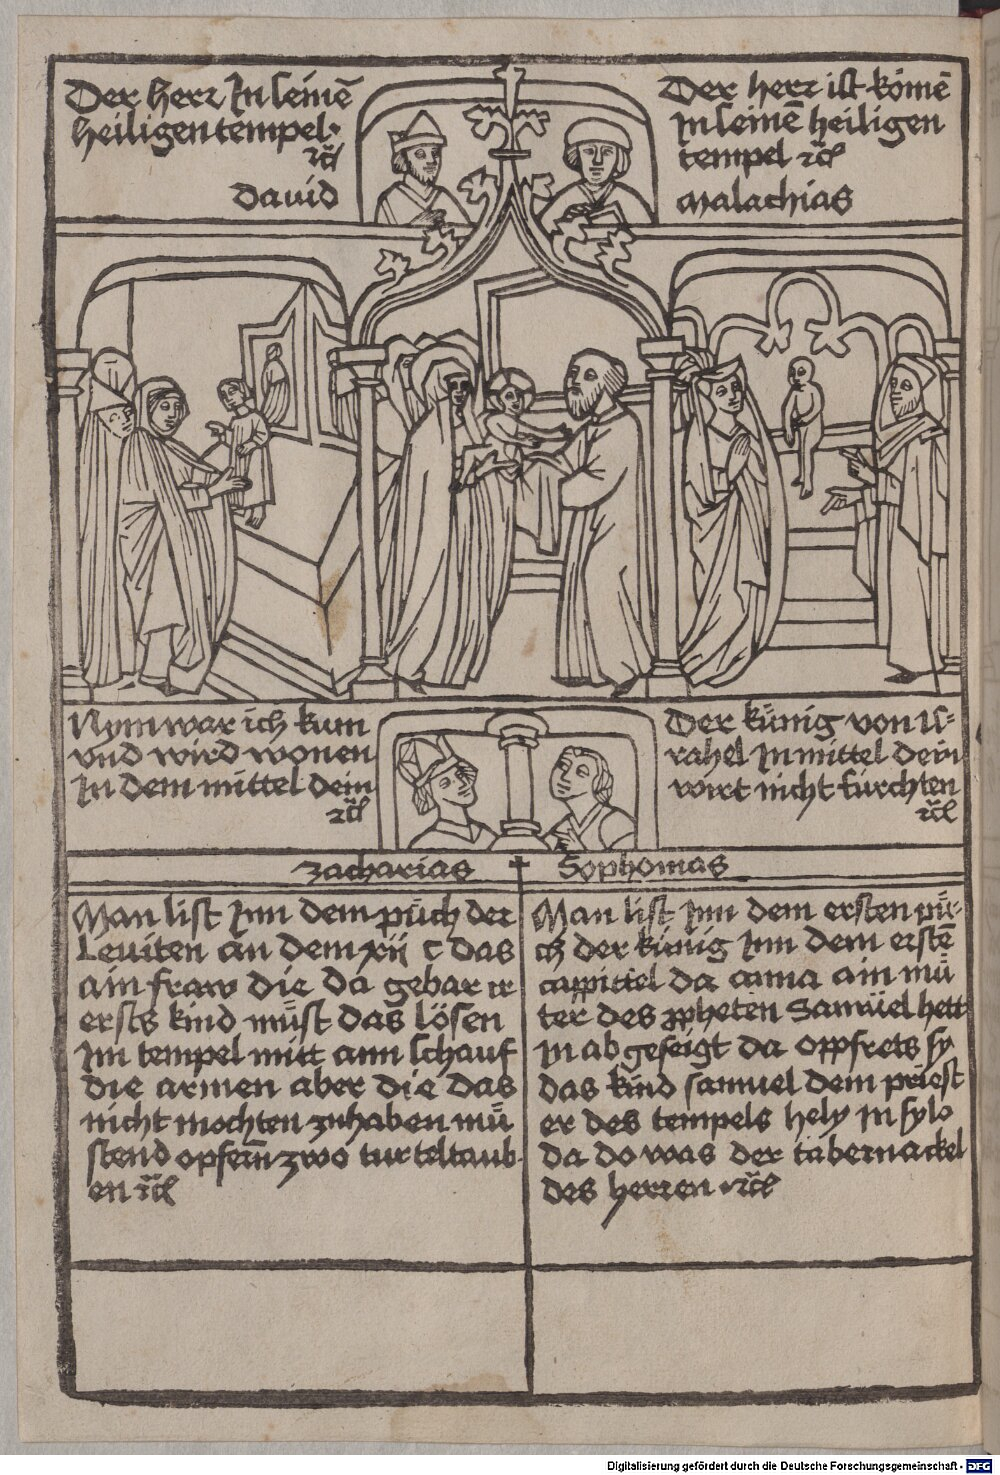 Der herr In seinē
heiligen tempel·
ꝛc̄
Dauid
Der herr ist kömē
In seinē heiligen
tempel ꝛc̄
Malachias
Nym war ich kum
vnd wird wonen
In dem mittel dein
ꝛc̄
Der künig von Is=
rahel In mittel dein
wirt nicht fürchten
ꝛc̄
zacharias
Sophonias
Man list Inn dem půch der
Leuiten an dem xii c das
ain fraw die da gebar ir
ersts kind můst das lösen
Im tempel mitt aim schauf
die armen aber die das
nicht mochten zuhaben mů
stend opfern̄ zwo turteltaub-
en ꝛc̄
Man list Inn dem ersten půc-
ch der künig Inn dem erstē
cappittel da anna ain mů
ter des ꝓpheten Samüel hett
In abgeseigt da oppfrets sy
das kind samuel dem priest
er des tempels hely In sylo
da do was der tabernackel
des herren ·ꝛc̄
Digitalisierung gefördert durch die Deutsche Forschungsgemeinschaft - DFG